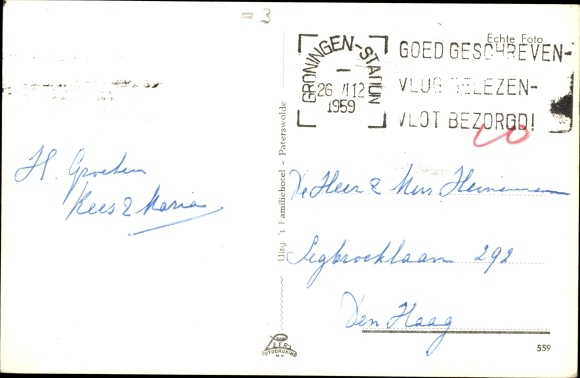 = 3
Echte Foto
GRONINGEN-STATION
26 VI 12
1959
GOED GESCHREVEN-
VLUG GELEZEN-
VLOT BEZORGD!
H. Groeten
Kees & Maria
Uitg. 't Familiehotel - Paterswolde
De Heer & Mevr Heinemann
Segbroeklaan 292
Den Haag
FOTODRUKKERIJ
559